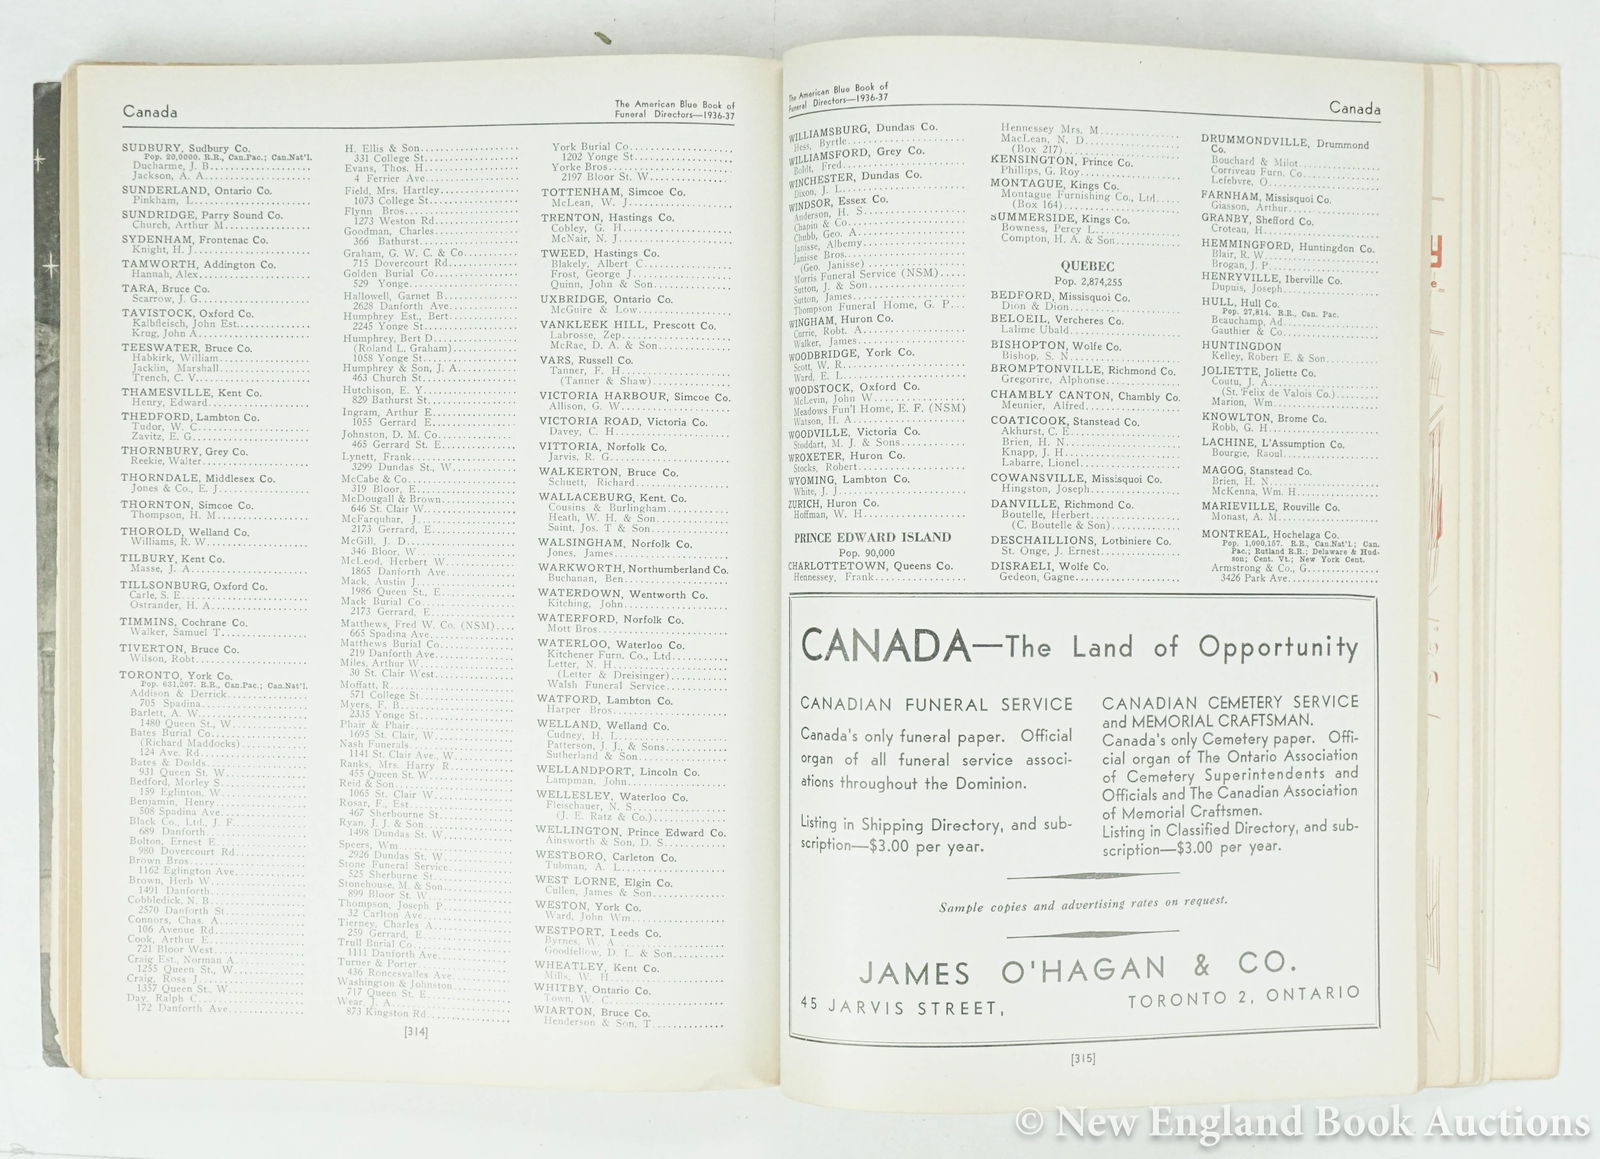 Canada
The American Blue Book of
Funeral Directors—1936-37
SUDBURY, Sudbury Co.
Pop. 20,0000. R.R., Can.Pac.; Can.Nat'l.
Ducharme, J. B.
Jackson, A. A.
SUNDERLAND, Ontario Co.
Pinkham, L.
SUNDRIDGE, Parry Sound Co.
Church, Arthur M.
SYDENHAM, Frontenac Co.
Knight, H. J.
TAMWORTH, Addington Co.
Hannah, Alex.
TARA, Bruce Co.
Scarrow, J. G.
TAVISTOCK, Oxford Co.
Kalbfleisch, John Est.
Krug, John A.
TEESWATER, Bruce Co.
Habkirk, William
Jacklin, Marshall
Trench, C. V.
THAMESVILLE, Kent Co.
Henry, Edward
THEDFORD, Lambton Co.
Tudor, W. C.
Zavitz, E. G.
THORNBURY, Grey Co.
Reekie, Walter
THORNDALE, Middlesex Co.
Jones & Co., E. J.
THORNTON, Simcoe Co.
Thompson, H. M.
THOROLD, Welland Co.
Williams, R. W.
TILBURY, Kent Co.
Masse, J. A.
TILLSONBURG, Oxford Co.
Carle, S. E.
Ostrander, H. A.
TIMMINS, Cochrane Co.
Walker, Samuel T.
TIVERTON, Bruce Co.
Wilson, Robt.
TORONTO, York Co.
Pop. 631,207. R.R., Can.Pac.; Can.Nat'l.
Addison & Derrick
705 Spadina
Barlett, A. W.
1480 Queen St., W.
Bates Burial Co.
(Richard Maddocks)
124 Ave. Rd.
Bates & Dodds
931 Queen St. W.
Bedford, Morley S.
159 Eglinton, W.
Benjamin, Henry
508 Spadina Ave.
Black Co., Ltd., J. F.
689 Danforth
Bolton, Ernest E.
980 Dovercourt Rd.
Brown Bros.
1162 Eglington Ave.
Brown, Herb W.
1491 Danforth
Cobbledick, N. B.
2570 Danforth St.
Connors, Chas. A.
106 Avenue Rd.
Cook, Arthur E.
721 Bloor West
Craig Est., Norman A.
1255 Queen St., W.
Craig, Ross J.
1357 Queen St., W.
Day, Ralph C.
172 Danforth Ave.
H. Ellis & Son
331 College St.
Evans, Thos. H.
4 Ferrier Ave.
Field, Mrs. Hartley
1073 College St.
Flynn Bros.
1273 Weston Rd.
Goodman, Charles
366 Bathurst
Graham, G. W. C. & Co.
715 Dovercourt Rd.
Golden Burial Co.
529 Yonge
Hallowell, Garnet B.
2628 Danforth Ave.
Humphrey Est., Bert
2245 Yonge St.
Humphrey, Bert D.
(Roland L. Graham)
1058 Yonge St.
Humphrey & Son, J. A.
463 Church St.
Hutchison, E. Y.
829 Bathurst St.
Ingram, Arthur E.
1055 Gerrard E.
Johnston, D. M. Co.
465 Gerrard St. E.
Lynett, Frank
3299 Dundas St., W.
McCabe & Co.
319 Bloor, E.
McDougall & Brown
646 St. Clair W.
McFarquhar, J.
2173 Gerrard, E.
McGill, J. D.
346 Bloor, W.
McLeod, Herbert W.
1865 Danforth Ave.
Mack, Austin J.
1986 Queen St., E.
Mack Burial Co.
2173 Gerrard, E.
Matthews, Fred W. Co. (NSM)
665 Spadina Ave.
Matthews Burial Co.
219 Danforth Ave.
Miles, Arthur W.
30 St. Clair West
Moffatt, R.
571 College St.
Myers, F. B.
2335 Yonge St.
Phair & Phair
1695 St. Clair, W.
Nash Funerals
1141 St. Clair Ave., W.
Ranks, Mrs. Harry R.
455 Queen St. W.
Reid & Son
1065 St. Clair W.
Rosar, F., Est.
467 Sherbourne St.
Ryan, J. J. & Son
1498 Dundas St. W.
Speers, Wm.
2926 Dundas St. W.
Stone Funeral Service
525 Sherburne St.
Stonehouse, M. & Son
899 Bloor St. W.
Thompson, Joseph P.
32 Carlton Ave.
Tierney, Charles A.
259 Gerrard, E.
Trull Burial Co.
1111 Danforth Ave.
Turner & Porter
436 Roncesvalles Ave.
Washington & Johnston
717 Queen St. E.
Wear, J. A.
873 Kingston Rd.
York Burial Co.
1202 Yonge St.
Yorke Bros.
2197 Bloor St. W.
TOTTENHAM, Simcoe Co.
McLean, W. J.
TRENTON, Hastings Co.
Cobley, G. H.
McNair, N. J.
TWEED, Hastings Co.
Blakely, Albert C.
Frost, George J.
Quinn, John & Son
UXBRIDGE, Ontario Co.
McGuire & Low
VANKLEEK HILL, Prescott Co.
Labrosse, Zep.
McRae, D. A. & Son
VARS, Russell Co.
Tanner, F. H.
(Tanner & Shaw)
VICTORIA HARBOUR, Simcoe Co.
Allison, G. W.
VICTORIA ROAD, Victoria Co.
Davey, C. H.
VITTORIA, Norfolk Co.
Jarvis, R. G.
WALKERTON, Bruce Co.
Schuett, Richard
WALLACEBURG, Kent. Co.
Cousins & Burlingham
Heath, W. H. & Son
Saint, Jos. T & Son
WALSINGHAM, Norfolk Co.
Jones, James
WARKWORTH, Northumberland Co.
Buchanan, Ben
WATERDOWN, Wentworth Co.
Kitching, John
WATERFORD, Norfolk Co.
Mott Bros.
WATERLOO, Waterloo Co.
Kitchener Furn. Co., Ltd.
Letter, N. H.
(Letter & Dreisinger)
Walsh Funeral Service
WATFORD, Lambton Co.
Harper Bros.
WELLAND, Welland Co.
Cudney, H. L.
Patterson, J. J., & Sons
Sutherland & Son
WELLANDPORT, Lincoln Co.
Lampman, John
WELLESLEY, Waterloo Co.
Fleischauer, N. S.
(J. E. Ratz & Co.)
WELLINGTON, Prince Edward Co.
Ainsworth & Son, D. S.
WESTBORO, Carleton Co.
Tubman, A. L.
WEST LORNE, Elgin Co.
Cullen, James & Son
WESTON, York Co.
Ward, John Wm.
WESTPORT, Leeds Co.
Byrnes, W. A.
Goodfellow, D. L. & Son
WHEATLEY, Kent Co.
Mills, W. H.
WHITBY, Ontario Co.
Town, W. C.
WIARTON, Bruce Co.
Henderson & Son, T.
[314]
The American Blue Book of
Funeral Directors—1936-37
Canada
WILLIAMSBURG, Dundas Co.
Hess, Byrtle
WILLIAMSFORD, Grey Co.
Boldt, Fred
WINCHESTER, Dundas Co.
Dixon, J. L.
WINDSOR, Essex Co.
Anderson, H. S.
Chapin & Co.
Chubb, Geo. A.
Janisse, Albemy
Janisse Bros.
(Geo. Janisse)
Morris Funeral Service (NSM)
Sutton, J. & Son
Sutton, James
Thompson Funeral Home, G. P.
WINGHAM, Huron Co.
Currie, Robt. A.
Walker, James
WOODBRIDGE, York Co.
Scott, W. R.
Ward, E. L.
WOODSTOCK, Oxford Co.
McLevin, John W.
Meadows Fun'l Home, E. F. (NSM)
Watson, H. A.
WOODVILLE, Victoria Co.
Stoddart, M. J. & Sons
WROXETER, Huron Co.
Stocks, Robert
WYOMING, Lambton Co.
White, J. J.
ZURICH, Huron Co.
Hoffman, W. H.
PRINCE EDWARD ISLAND
Pop. 90,000
CHARLOTTETOWN, Queens Co.
Hennessey, Frank
Hennessey Mrs. M.
MacLean, N. D.
(Box 217)
KENSINGTON, Prince Co.
Phillips, G. Roy
MONTAGUE, Kings Co.
Montague Furnishing Co., Ltd.
(Box 164)
SUMMERSIDE, Kings Co.
Bowness, Percy L.
Compton, H. A. & Son
QUEBEC
Pop. 2,874,255
BEDFORD, Missisquoi Co.
Dion & Dion
BELOEIL, Vercheres Co.
Lalime Ubald
BISHOPTON, Wolfe Co.
Bishop, S. N.
BROMPTONVILLE, Richmond Co.
Gregorire, Alphonse
CHAMBLY CANTON, Chambly Co.
Meunier, Alfred
COATICOOK, Stanstead Co.
Akhurst, C. E.
Brien, H. N.
Knapp, J. H.
Labarre, Lionel
COWANSVILLE, Missisquoi Co.
Hingston, Joseph
DANVILLE, Richmond Co.
Boutelle, Herbert
(C. Boutelle & Son)
DESCHAILLIONS, Lotbiniere Co.
St. Onge, J. Ernest
DISRAELI, Wolfe Co.
Gedeon, Gagne
DRUMMONDVILLE, Drummond
Co.
Bouchard & Milot
Corriveau Furn. Co.
Lefebvre, O.
FARNHAM, Missisquoi Co.
Giasson, Arthur
GRANBY, Shefford Co.
Croteau, H.
HEMMINGFORD, Huntingdon Co.
Blair, R. W.
Brogan, J. P.
HENRYVILLE, Iberville Co.
Dupuis, Joseph
HULL, Hull Co.
Pop. 27,814. R.R., Can. Pac.
Beauchamp, Ad.
Gauthier & Co.
HUNTINGDON
Kelley, Robert E. & Son
JOLIETTE, Joliette Co.
Coutu, J. A.
(St. Felix de Valois Co.)
Marion, Wm.
KNOWLTON, Brome Co.
Robb, G. H.
LACHINE, L'Assumption Co.
Bourgie, Raoul
MAGOG, Stanstead Co.
Brien, H. N.
McKenna, Wm. H.
MARIEVILLE, Rouville Co.
Monast, A. M.
MONTREAL, Hochelaga Co.
Pop. 1,000,157. R.R., Can.Nat'l.; Can.
Pac.; Rutland R.R.; Delaware & Hud-
son; Cent. Vt.; New York Cent.
Armstrong & Co., G.
3426 Park Ave.
CANADA—The Land of Opportunity
CANADIAN FUNERAL SERVICE
Canada's only funeral paper. Official
organ of all funeral service associ-
ations throughout the Dominion.
Listing in Shipping Directory, and sub-
scription—$3.00 per year.
CANADIAN CEMETERY SERVICE
and MEMORIAL CRAFTSMAN.
Canada's only Cemetery paper. Offi-
cial organ of The Ontario Association
of Cemetery Superintendents and
Officials and The Canadian Association
of Memorial Craftsmen.
Listing in Classified Directory, and sub-
scription—$3.00 per year.
Sample copies and advertising rates on request.
JAMES O'HAGAN & CO.
45 JARVIS STREET, TORONTO 2, ONTARIO
[315]
© New England Book Auctions